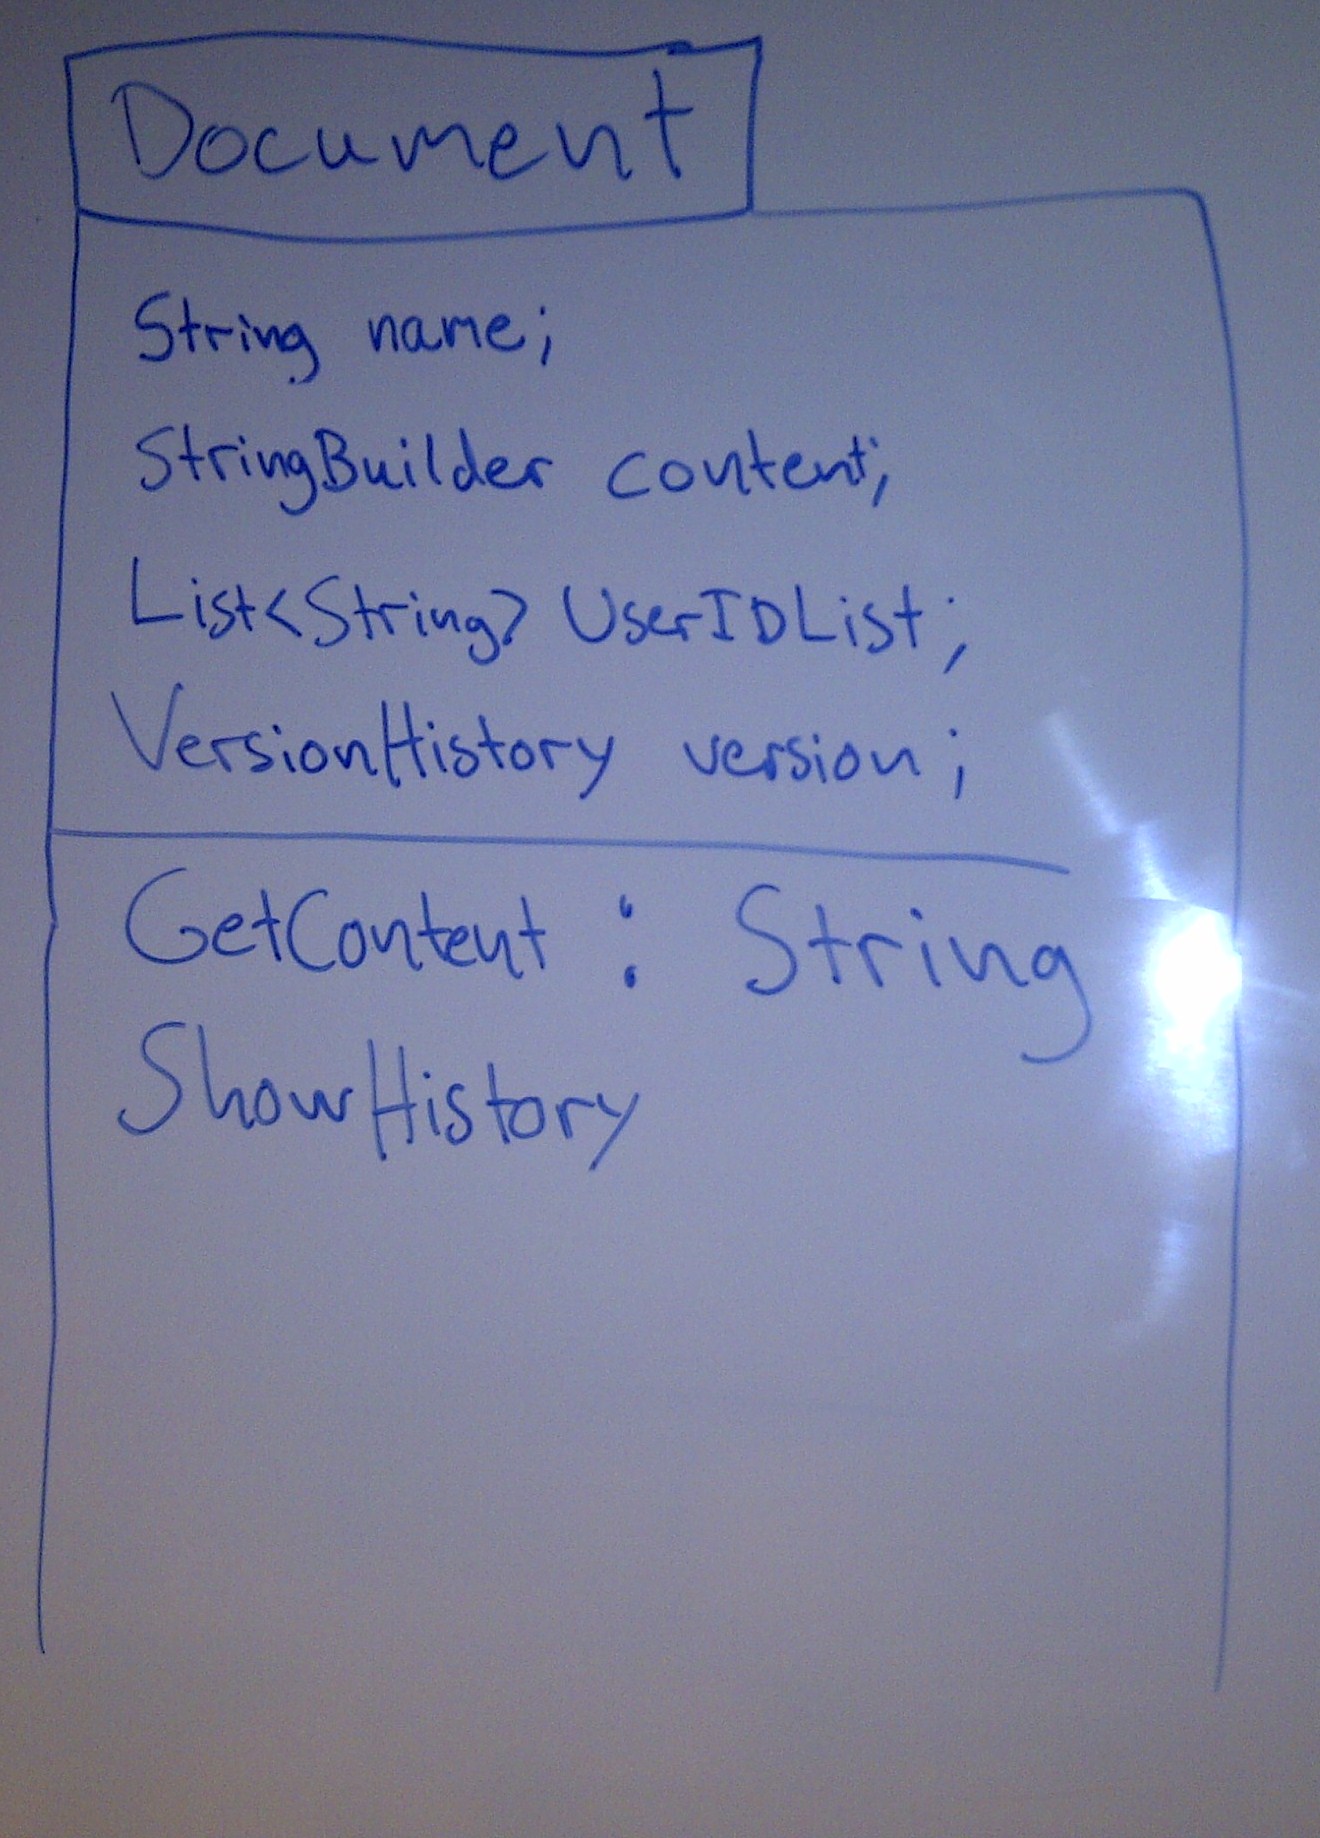 Document
String name;
StringBuilder content;
List<String> UserIDList;
VersionHistory version;
GetContent : String
ShowHistory